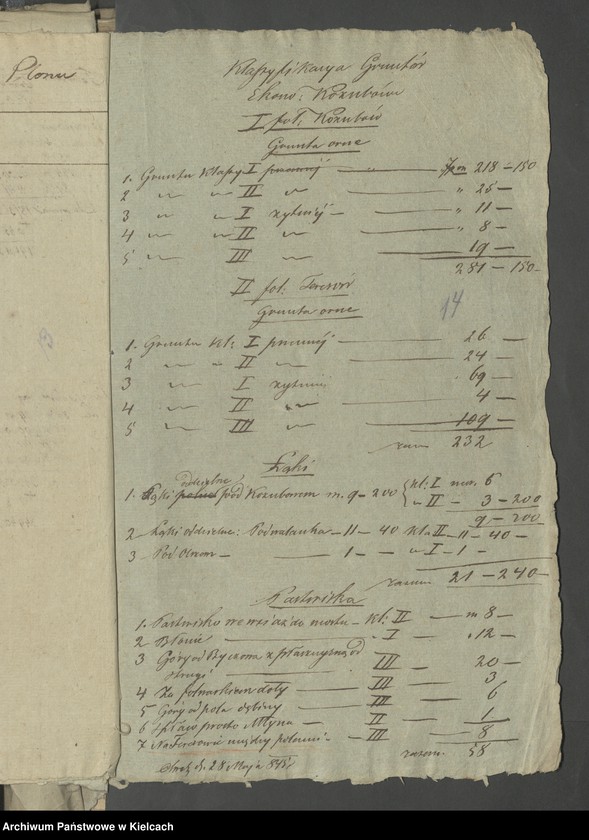 Plonu
Klassyfikacya Gruntów
Ekono: Kozubów
I fol: Kozubów
Grunta orne
1. Grunta Klassy I pszennej — " — 218 — 150
2 " " II " — " 25 —
3 " " I żytniej — " 11 —
4 " " II " — " 8 —
5 " III " — 19 —
281 — 150
II fol: Teresów
14
Grunta orne
1. Grunta kl: I pszennej — 26 —
2 " " II " — 24 —
3 " I żytniej 69 —
4 " II " — 4 —
5 " III " — 109 —
razem 232
Łąki
oddzielne
1. Łąki pod Kozubowem m. 9 — 200 kl: I mor. 6
" II — 3 — 200
9 — 200
2 Łąki oddzielne: — 11 — 40 kla II — 11 — 40 —
3 Pod — 1 — " I — 1 —
razem 21 — 240 —
Pastwiska
1. Pastwisko we wsi aż do mostu — kl: II — m. 8 —
2 Błonie — " I — " 12 —
3 Góry od Byczowa z płaszczyzną od
III — 20 —
drugi — 3
4 Za folwarkiem doły — III — 6
5 Góry od pola dębiny — III —
6 prosto Młyna — II — 1
7 Na Teresowie między polami — III — 8
razem 58
d. 28 Maja 845
Archiwum Państwowe w Kielcach